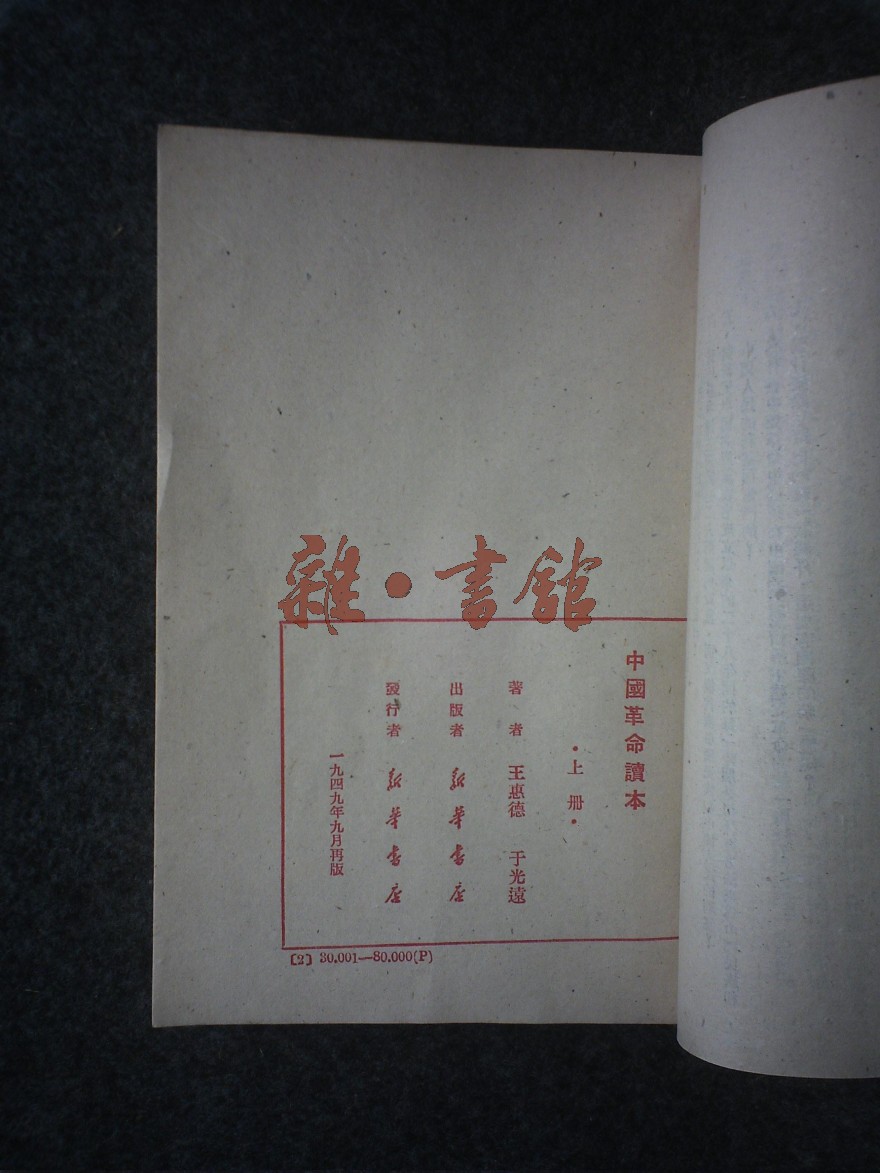 雜·書館
中國革命讀本
·上册·
著者 王惠德 于光遠
出版者 新華書店
發行者 新華書店
一九四九年九月再版
〔2〕 30.001—80.000(P)